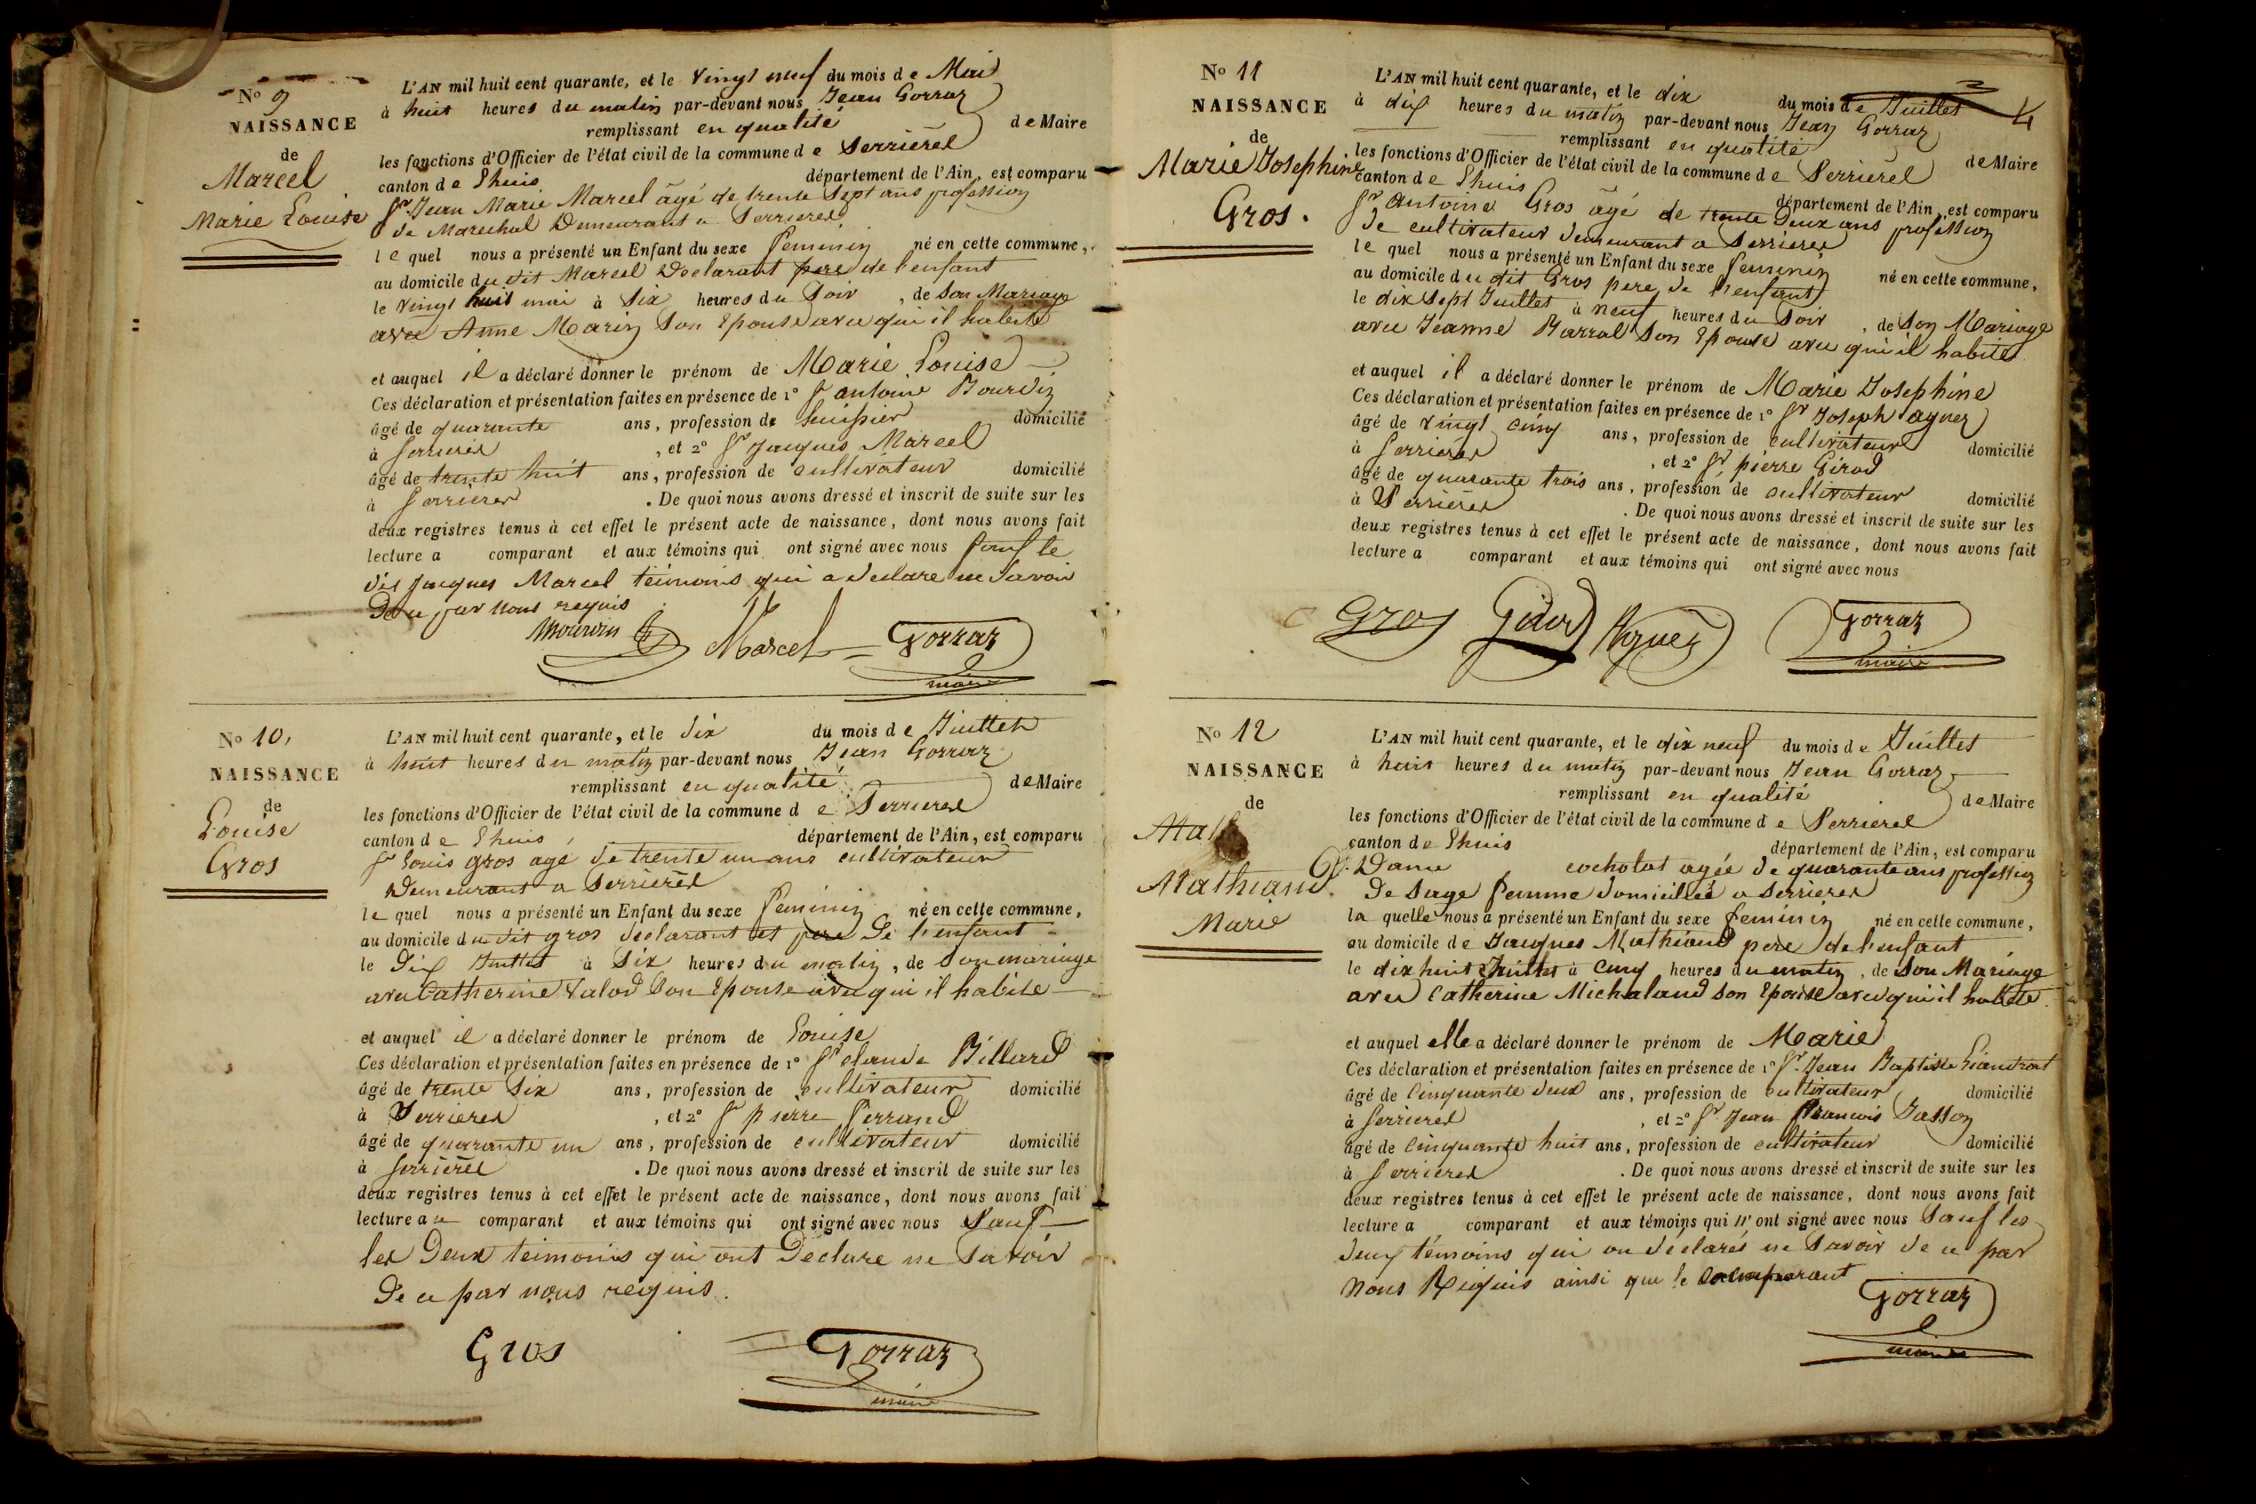 No 9
NAISSANCE
de
Marcel
Marie Louise
L'AN mil huit cent quarante, et le vingt neuf du mois de Mai
à huit heures du matin par-devant nous Jean Gorraz
remplissant en qualité de Maire
les fonctions d'Officier de l'état civil de la commune de Serrieres
canton de Lhuis département de l'Ain, est comparu
Sr Jean Marie Marcel âgé de trente sept ans profession
de Marechal Demeurant a Serrieres
le quel nous a présenté un Enfant du sexe feminin né en cette commune,
au domicile du dit Marcel Déclarant pere de l'enfant
le vingt huit mai à Six heures du Soir, de Son Mariage
avec Anne Marin Son Epouse avec qui il habite
et auquel il a déclaré donner le prénom de Marie Louise
Ces déclaration et présentation faites en présence de 1° Sr antoine Bourdin
âgé de quarante ans, profession de huissier domicilié
à Serrieres, et 2° Sr Jacques Marcel
âgé de trente huit ans, profession de cultivateur domicilié
à Serrieres. De quoi nous avons dressé et inscrit de suite sur les
deux registres tenus à cet effet le présent acte de naissance, dont nous avons fait
lecture a comparant et aux témoins qui ont signé avec nous Sauf le
dit Jacques Marcel teimoins qui a declare ne Savoir
De ce par nous requis
Marcel Gorraz
maire
No 10,
NAISSANCE
de
Louise
Gros
L'AN mil huit cent quarante, et le dix du mois de Juillet
à huit heures du matin par-devant nous Jean Gorraz
remplissant en qualité de Maire
les fonctions d'Officier de l'état civil de la commune de Serrieres
canton de Lhuis département de l'Ain, est comparu
Sr Louis gros agé de trente un ans cultivateur
Demeurant a Serrieres
le quel nous a présenté un Enfant du sexe feminin né en cette commune,
au domicile du dit gros declarant et pere De l'enfant
le Dix Juillet à Six heures du matin, de Son mariage
avec Catherine Valod Son Epouse avec qui il habite
et auquel il a déclaré donner le prénom de Louise
Ces déclaration et présentation faites en présence de 1° Sr claude Billard
âgé de trente Six ans, profession de cultivateur domicilié
à Serrieres, et 2° Sr pierre ferrand
âgé de quarante un ans, profession de cultivateur domicilié
à Serrieres. De quoi nous avons dressé et inscrit de suite sur les
deux registres tenus à cet effet le présent acte de naissance, dont nous avons fait
lecture au comparant et aux témoins qui ont signé avec nous Sauf
les Deux teimoins qui ont Declare ne Savoir
De ce par nous reqius.
Gros Gorraz
maire
No 11
NAISSANCE
de
Marie Josephine
Gros.
4
L'AN mil huit cent quarante, et le dix du mois de Juillet
à dix heures du matin par-devant nous Jean Gorraz
remplissant en qualité de Maire
les fonctions d'Officier de l'état civil de la commune de Serrieres
canton de Lhuis département de l'Ain, est comparu
Sr Antoine Gros âgé de trente Deux ans profession
De cultivateur demeurant a Serrieres
le quel nous a présenté un Enfant du sexe feminin né en cette commune,
au domicile du dit Gros pere de l'enfant
le dix Sept Juillet à neuf heures du Soir, de Son Mariage
avec Jeanne Barral Son Epouse avec qui il habite
et auquel il a déclaré donner le prénom de Marie Josephine
Ces déclaration et présentation faites en présence de 1° Sr Joseph agnez
âgé de vingt cinq ans, profession de cultivateur domicilié
à Serrieres, et 2° Sr pierre Girod
âgé de quarante trois ans, profession de cultivateur domicilié
à Serrieres. De quoi nous avons dressé et inscrit de suite sur les
deux registres tenus à cet effet le présent acte de naissance, dont nous avons fait
lecture a comparant et aux témoins qui ont signé avec nous
Gros Girod Agnez Gorraz
maire
No 12
NAISSANCE
de
Math
Mathiand
Marie
L'AN mil huit cent quarante, et le dix neuf du mois de Juillet
à huit heures du matin par-devant nous Jean Gorraz
remplissant en qualité de Maire
les fonctions d'Officier de l'état civil de la commune de Serrieres
canton de Lhuis département de l'Ain, est comparu
Dame cochotat agée de quarante ans profession
De Sage femme domiciliée a Serrieres
la quelle nous a présenté un Enfant du sexe feminin né en cette commune,
au domicile de Jacques Mathiand pere de l'enfant
le dix huit Juillet à cinq heures du matin, de Son Mariage
avec Catherine Michaland Son Epouse avec qui il habite
et auquel elle a déclaré donner le prénom de Marie
Ces déclaration et présentation faites en présence de 1° Sr Jean Baptiste
âgé de Cinquante deux ans, profession de cultivateur domicilié
à Serrieres, et 2° Sr Jean francois Jasson
âgé de Cinquante huit ans, profession de cultivateur domicilié
à Serrieres. De quoi nous avons dressé et inscrit de suite sur les
deux registres tenus à cet effet le présent acte de naissance, dont nous avons fait
lecture a comparant et aux témoins qui n'ont signé avec nous Sauf les
deux témoins qui on déclarés ne Savoir de ce par
nous Requis ainsi que le comparant
Gorraz
maire